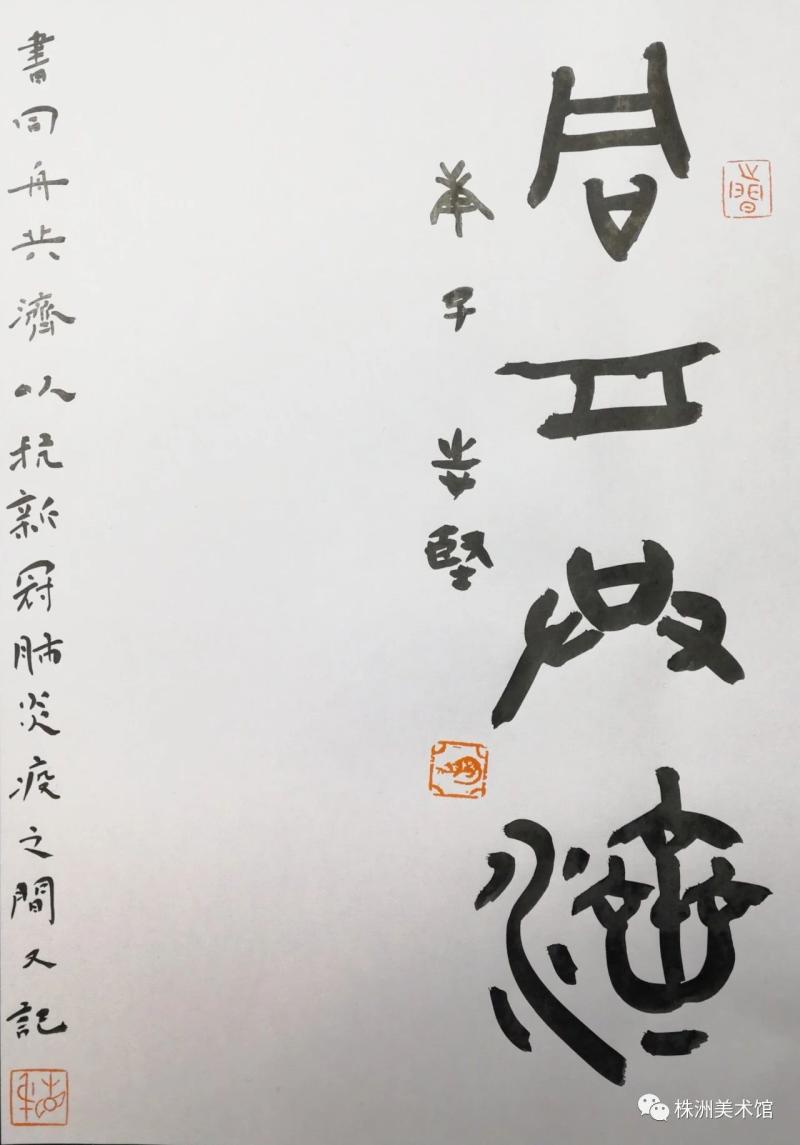 同舟共濟
庚子 安堅
書同舟共濟以抗新冠肺炎疫之間又記
株洲美术馆